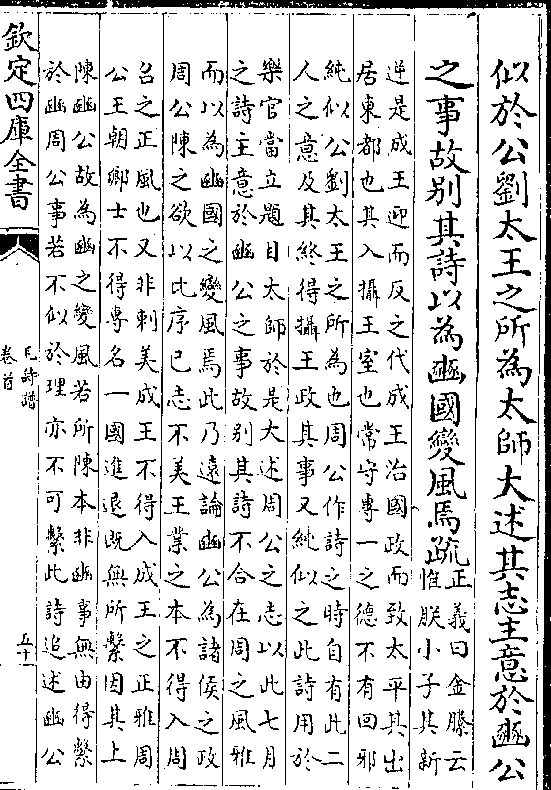 似於公劉太王之所為太師大述其志主意於豳公
之事故别其詩以為豳國變風焉疏
正義曰金縢云
惟朕小子其新
逆是成王迎而反之代成王治國政而致太平其出
居東都也其入攝王室也常守專一之德不有回邪
純似公劉太王之所為也周公作詩之時自有此二
人之意及其終得攝王政其事又純似之此詩用於
樂官當立題目太師於是大述周公之志以此七月
之詩主意於豳公之事故别其詩不合在周之風雅
而以為豳國之變風焉此乃逺論豳公為諸侯之政
周公陳之欲以比序已志不美王業之本不得入周
召之正風也又非刺美成王不得入成王之正雅周
公王朝卿士不得專名一國進退既無所繫因其上
陳豳公故為豳之變風若所陳本非豳事無由得繫
於豳周公事若不似於理亦不可繫此詩追述豳公
欽定四庫全書
毛詩譜
卷首
五十一